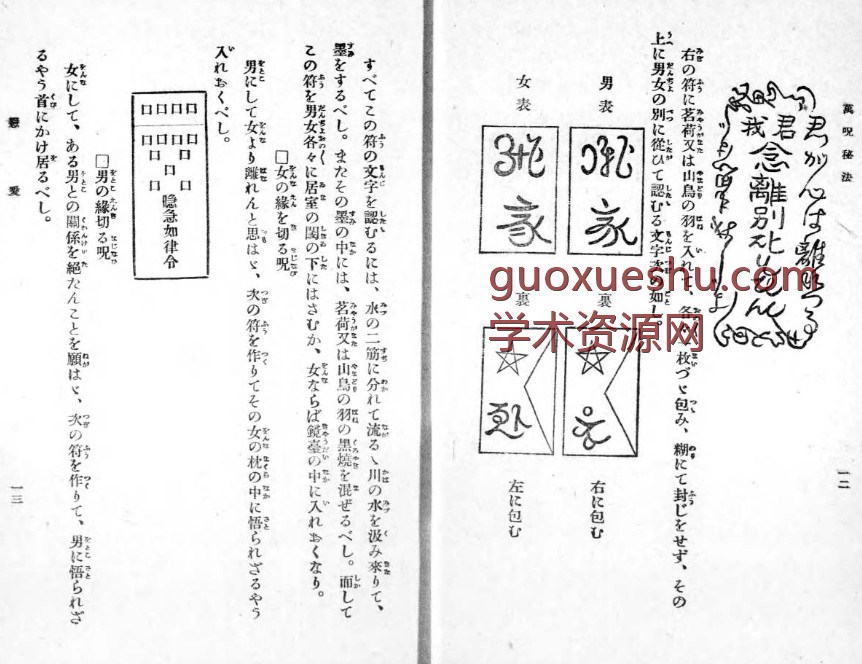 萬呪秘法
一二
君が心は離れつる
君
我
念離別
右の符に茗荷又は山鳥の羽を入れ
枚づゝ包み、糊にて封じをせず、その
上に男女の別に從ひて認むる文字次の如し。
男表
裏
右に包む
女表
裏
左に包む
guoxueshu.com
学术资源网
すべてこの符の文字を認むるには、水の二筋に分れて流るゝ川の水を汲み來りて、
墨をするべし。またその墨の中には、茗荷又は山鳥の羽の黒燒を混ぜるべし。而して
この符を男女各々に居室の閾の下にはさむか、女ならば鏡臺の中に入れおくなり。
□女の緣を切る呪
男にして女より離れんと思はゞ、次の符を作りてその女の枕の中に悟られざるやう
入れおくべし。
口口口口
口口口口
口口口
口口
口
隠急如律令
□男の緣切る呪
女にして、ある男との關係を絶たんことを願はゞ、次の符を作りて、男に悟られざ
るやう首にかけ居るべし。
愛
一三